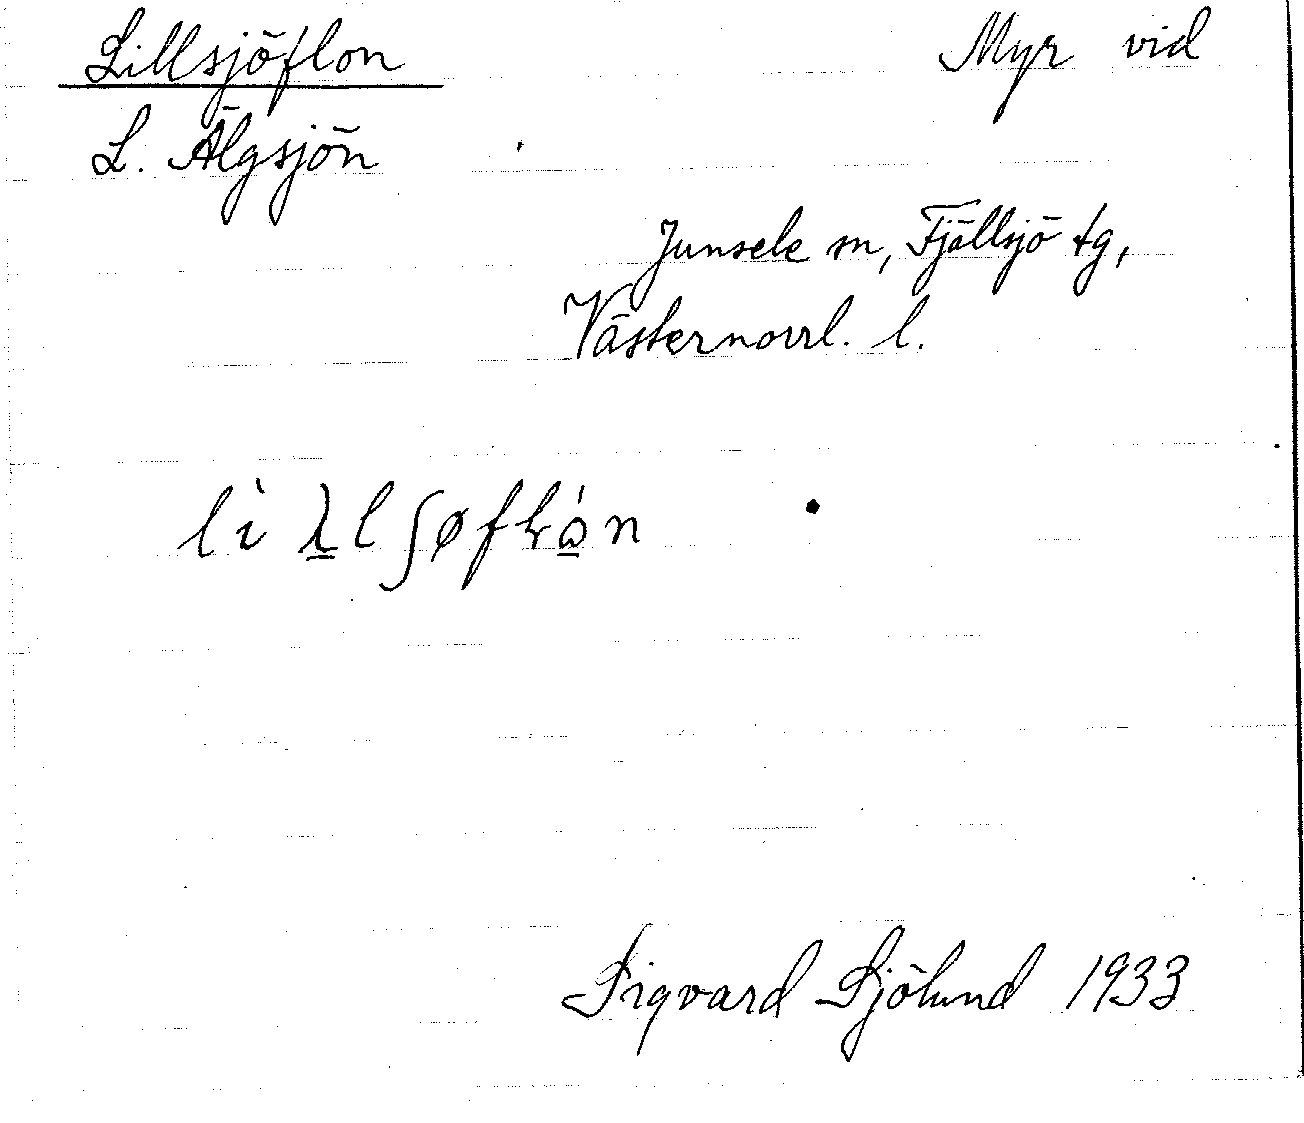 Lillsjöflon Myr vid
L. Älgsjön
Junsele sn, Fjällsjö tg,
Västernorrl. l.
Sigvard Sjölund 1933